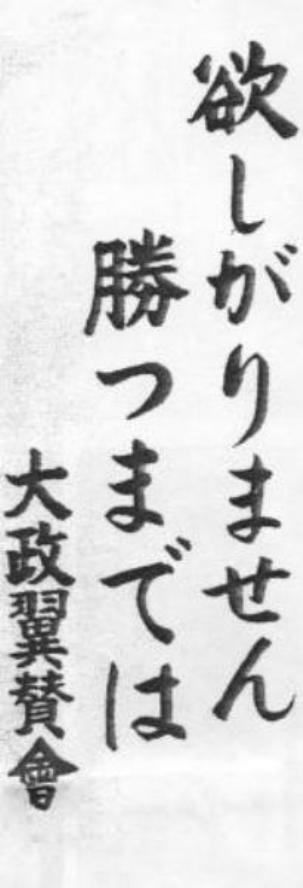 欲しがりません
勝つまでは
大政翼賛會